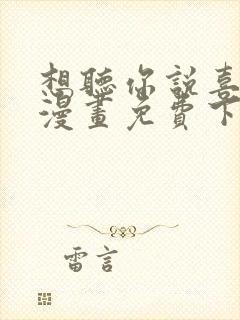 想聽你說喜
漫畫免費下
雷言